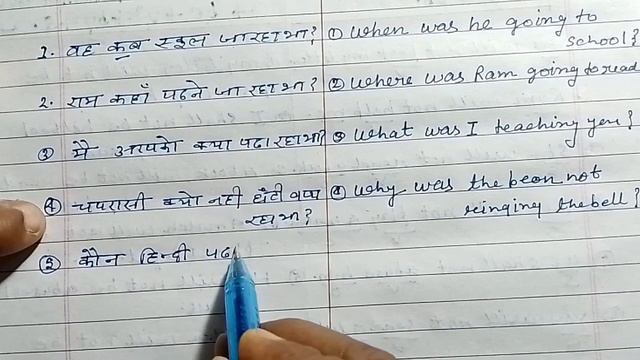 1. वह कब स्कूल जा रहा था? ① When was he going to
school?
2. राम कहाँ पढने जा रहा था? ② Where was Ram going to read
③ मै आपको क्या पढा रहा था? ③ What was I teaching you?
④ चपरासी क्यो नही घंटी बजा ④ Why was the peon not
रहा था? ringing the bell?
⑤ कौन हिन्दी पढ